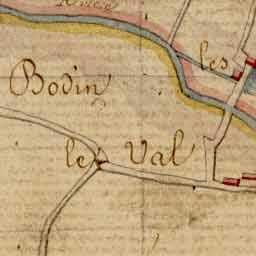 les
Bodin
le Val